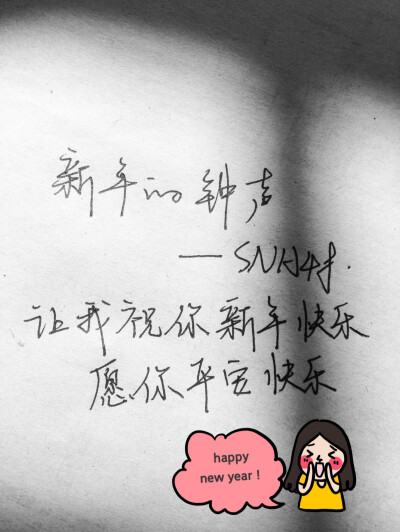 新年的钟声
——SNH48.
让我祝你新年快乐
愿你平安快乐
happy
new year !